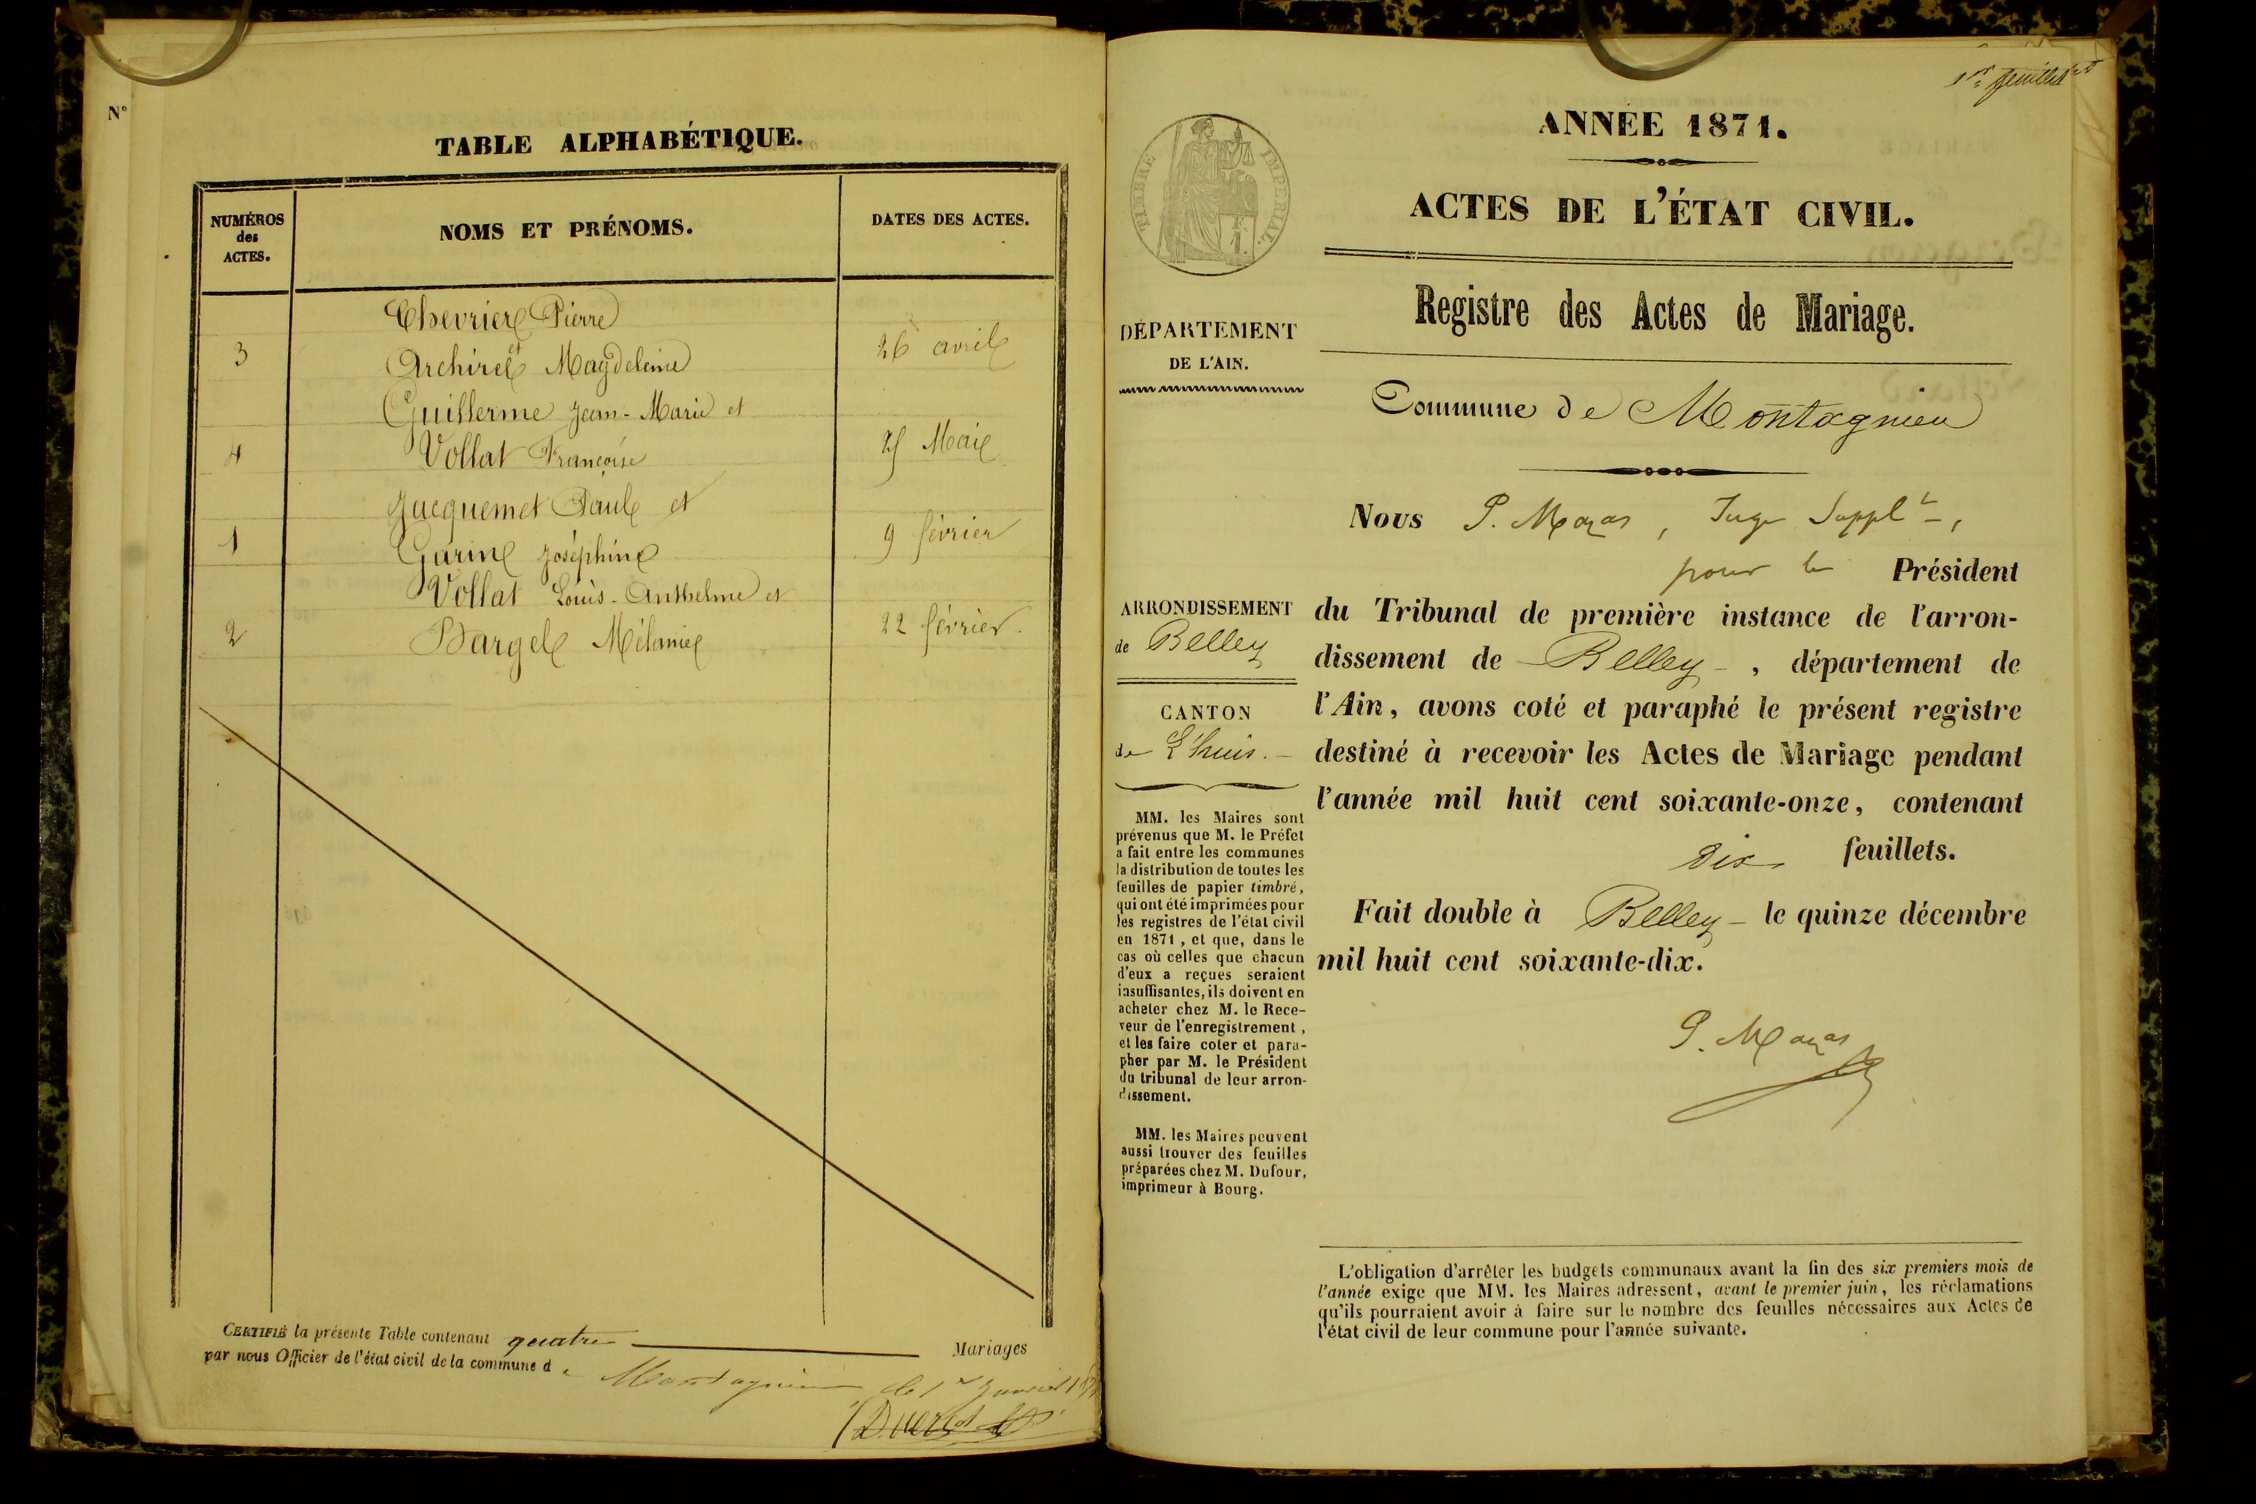 N°
TABLE ALPHABÉTIQUE.
NUMÉROS
des
ACTES.
NOMS ET PRÉNOMS.
DATES DES ACTES.
Chevrier Pierre
et
3 Archirel Magdeleine 26 avril
Guillerme Jean-Marie et
4 Vollat Françoise 25 Mai
Jacquemet Paul et
1 Garin Joséphine 9 février
Vollat Louis-Anthelme et
2 Bargel Mélanie 22 février.
CERTIFIÉ la présente Table contenant quatre Mariages
par nous Officier de l'état civil de la commune de Montagnieu le 1er Janvier
1er feuillet
TIMBRE IMPERIAL.
ANNÉE 1871.
ACTES DE L'ÉTAT CIVIL.
Registre des Actes de Mariage.
DÉPARTEMENT
DE L'AIN.
Commune de Montagnieu
ARRONDISSEMENT
de Belley
CANTON
de L'huis.
MM. les Maires sont
prévenus que M. le Préfet
a fait entre les communes
la distribution de toutes les
feuilles de papier timbré,
qui ont été imprimées pour
les registres de l'état civil
en 1871, et que, dans le
cas où celles que chacun
d'eux a reçues seraient
insuffisantes, ils doivent en
acheter chez M. le Rece-
veur de l'enregistrement,
et les faire coter et para-
pher par M. le Président
du tribunal de leur arron-
dissement.
MM. les Maires peuvent
aussi trouver des feuilles
préparées chez M. Dufour,
imprimeur à Bourg.
Nous P. Mazas, Juge Supplt,
pour le Président
du Tribunal de première instance de l'arron-
dissement de Belley, département de
l'Ain, avons coté et paraphé le présent registre
destiné à recevoir les Actes de Mariage pendant
l'année mil huit cent soixante-onze, contenant
dix feuillets.
Fait double à Belley le quinze décembre
mil huit cent soixante-dix.
P. Mazas
L'obligation d'arrêter les budgets communaux avant la fin des six premiers mois de
l'année exige que MM. les Maires adressent, avant le premier juin, les réclamations
qu'ils pourraient avoir à faire sur le nombre des feuilles nécessaires aux Actes de
l'état civil de leur commune pour l'année suivante.